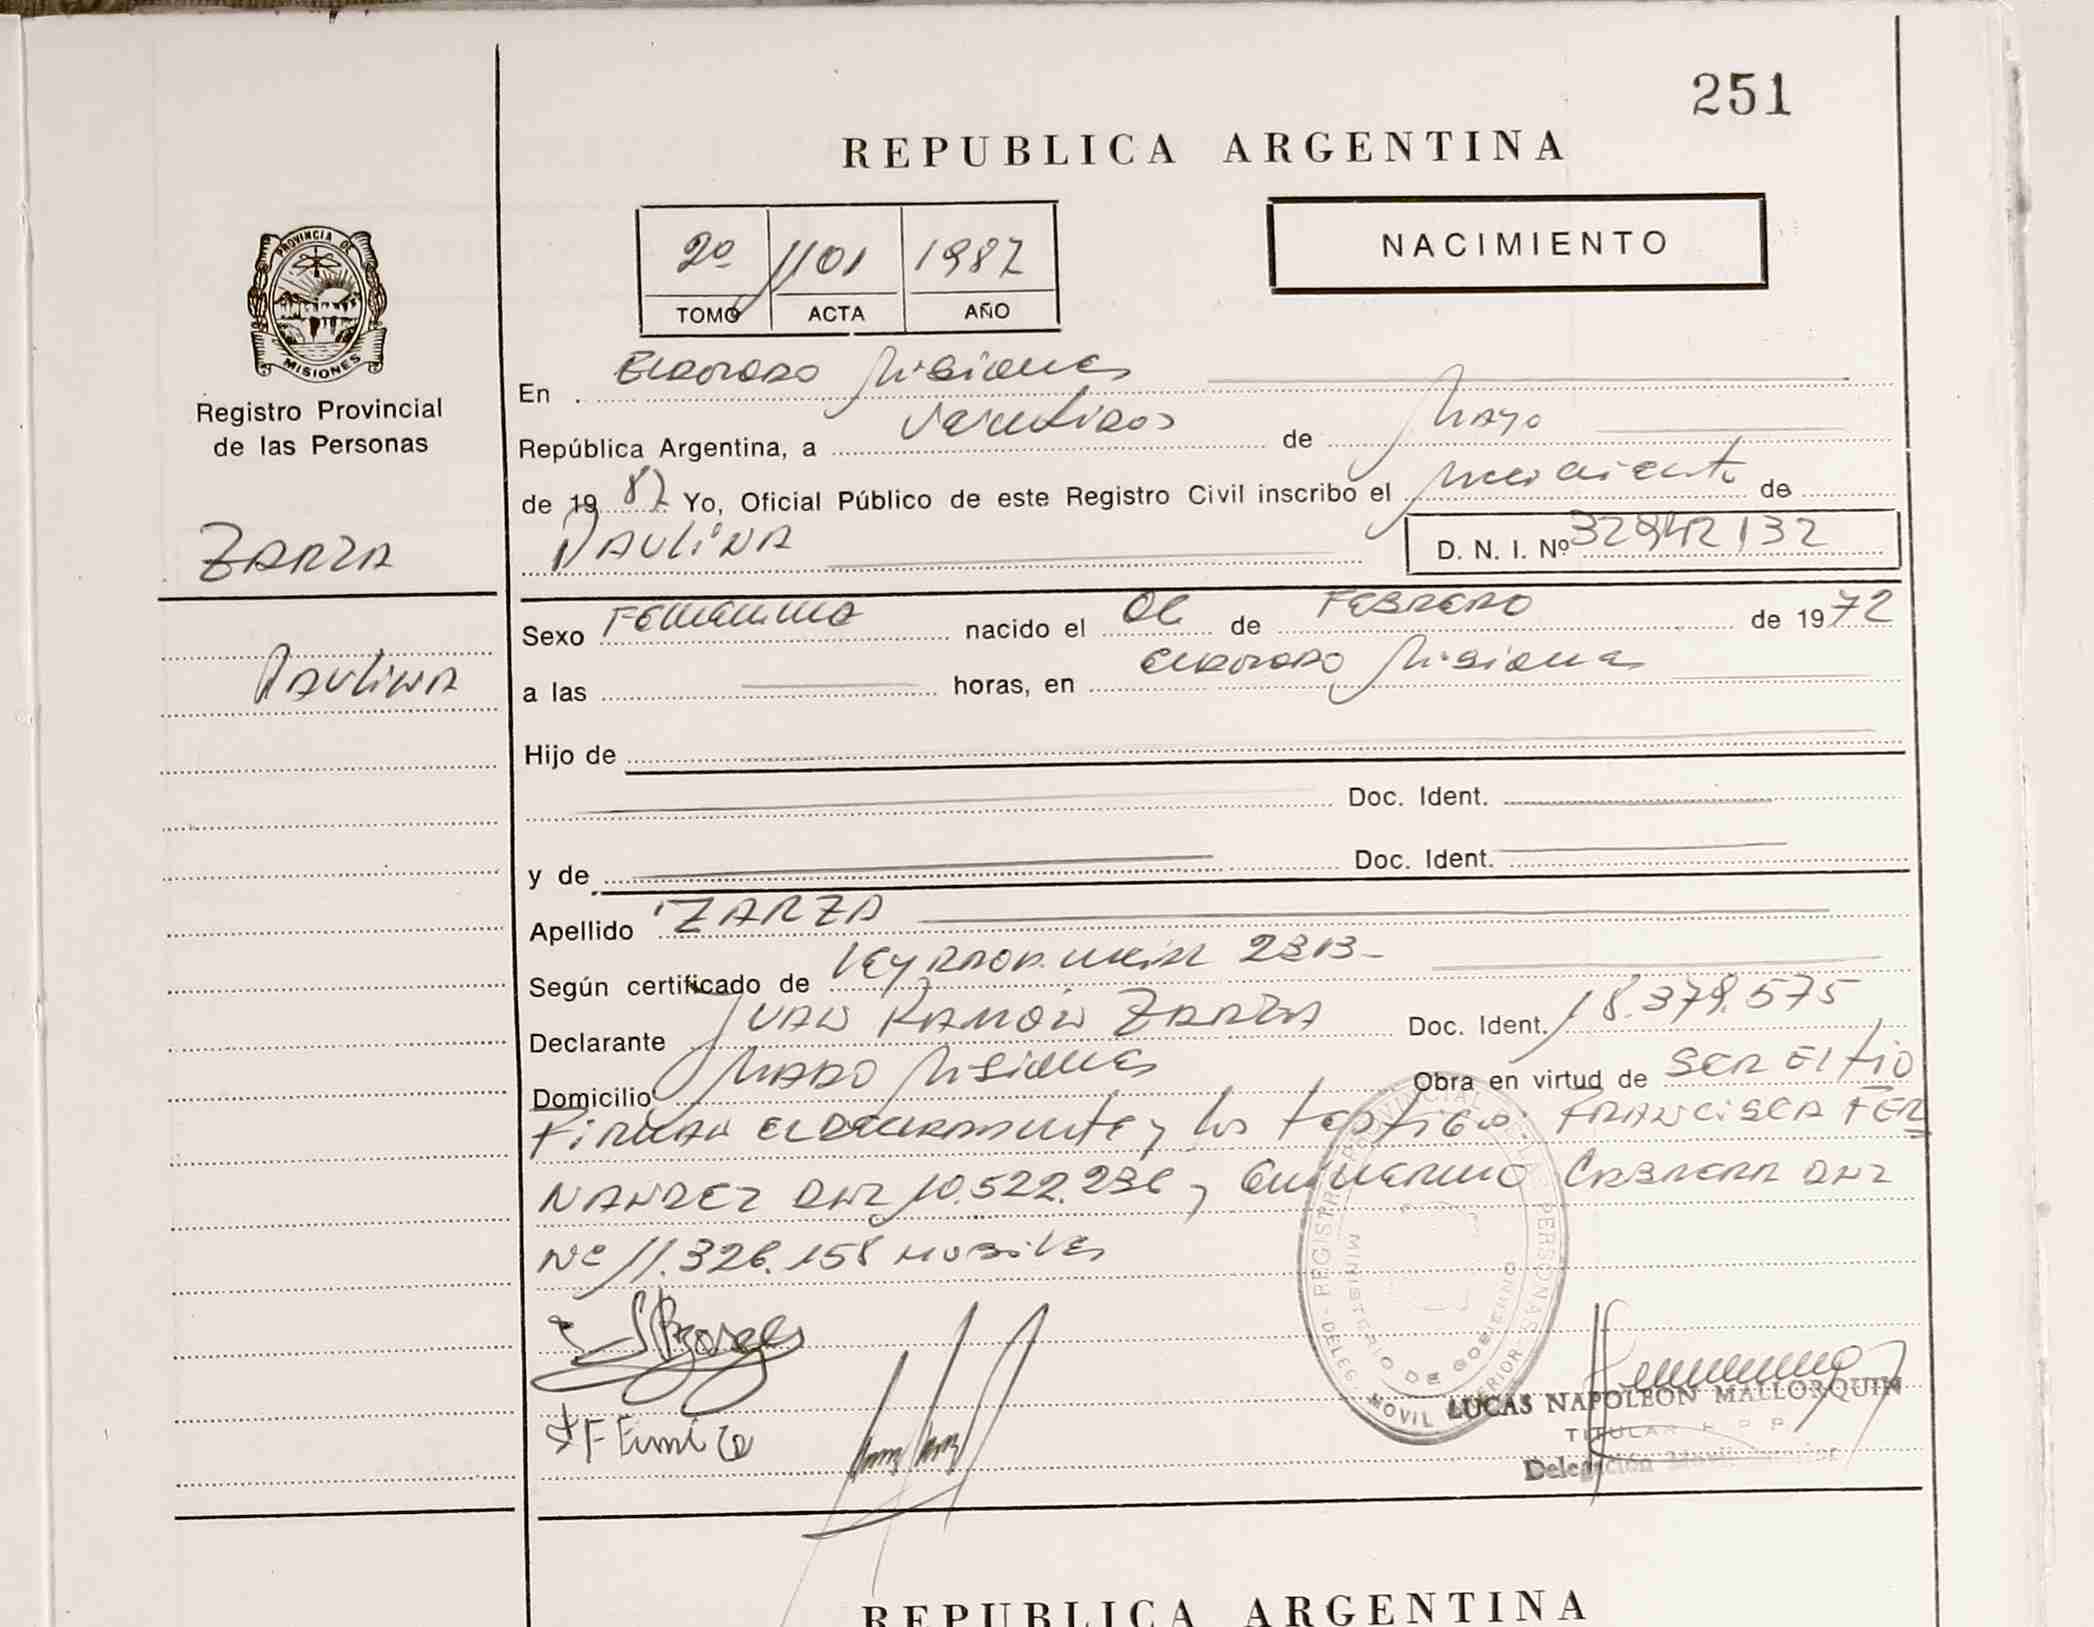 251
REPUBLICA ARGENTINA
2º 1101 1987
TOMO ACTA AÑO
NACIMIENTO
PROVINCIA DE
MISIONES
Registro Provincial
de las Personas
En Eldorado Misiones
República Argentina, a veintidos de Mayo
de 1987 Yo, Oficial Público de este Registro Civil inscribo el nacimiento de
ZARZA
PAULINA
D. N. I. Nº 32942132
Sexo Femenino nacido el 06 de FEBRERO de 1972
Paulina
a las horas, en Eldorado Misiones
Hijo de
Doc. Ident.
y de Doc. Ident.
Apellido ZARZA
Según certificado de Ley 2313-
Declarante JUAN RAMÓN ZARZA Doc. Ident. 18.379.575
Domicilio Misiones Obra en virtud de SER EL TIO
Firman el declarante y los testigos FRANCISCA FER
NANDEZ DNI 10.522.236 y Guillermo CABRERA DNI
Nº 11.326.158
REGISTRO PROVINCIAL DE LAS PERSONAS
MINISTERIO DE GOBIERNO
DELEG. MOVIL INTERIOR
LUCAS NAPOLEON MALLORQUIN
TITULAR R P P
Delegación Movil Interior
REPUBLICA ARGENTINA